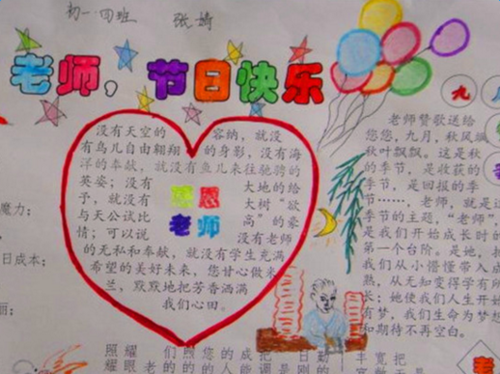 初一·四班 张婧
老师，节日快乐
没有天空的容纳，就没
有鸟儿自由翱翔的身影，没有海
洋的奉献，就没有鱼儿来往驰骋的
英姿；没有大地的给
予，就没有大树“欲
与天公试比高”的豪
情；可以说没有老师
的无私和奉献，就没有学生充满
希望的美好未来，您甘心做米
兰，默默地把芳香洒满
我们心田。
感恩
老师
九
老师赞歌送给
您，九月，秋风飒
秋叶飘飘。这是秋
的季节，是收获的
季节，是回报的季
节……老师，就是这
季节的主题，“老师”
是我们开始成长的
第一个台阶。是她，把
我们从小懵懂带入成
熟，从无知变得学有所
长；她使我们人生开始
有梦，我们生命为梦想
和期待不再空白。
魔力；
日成本；
照耀
耀老的
们照您的成把